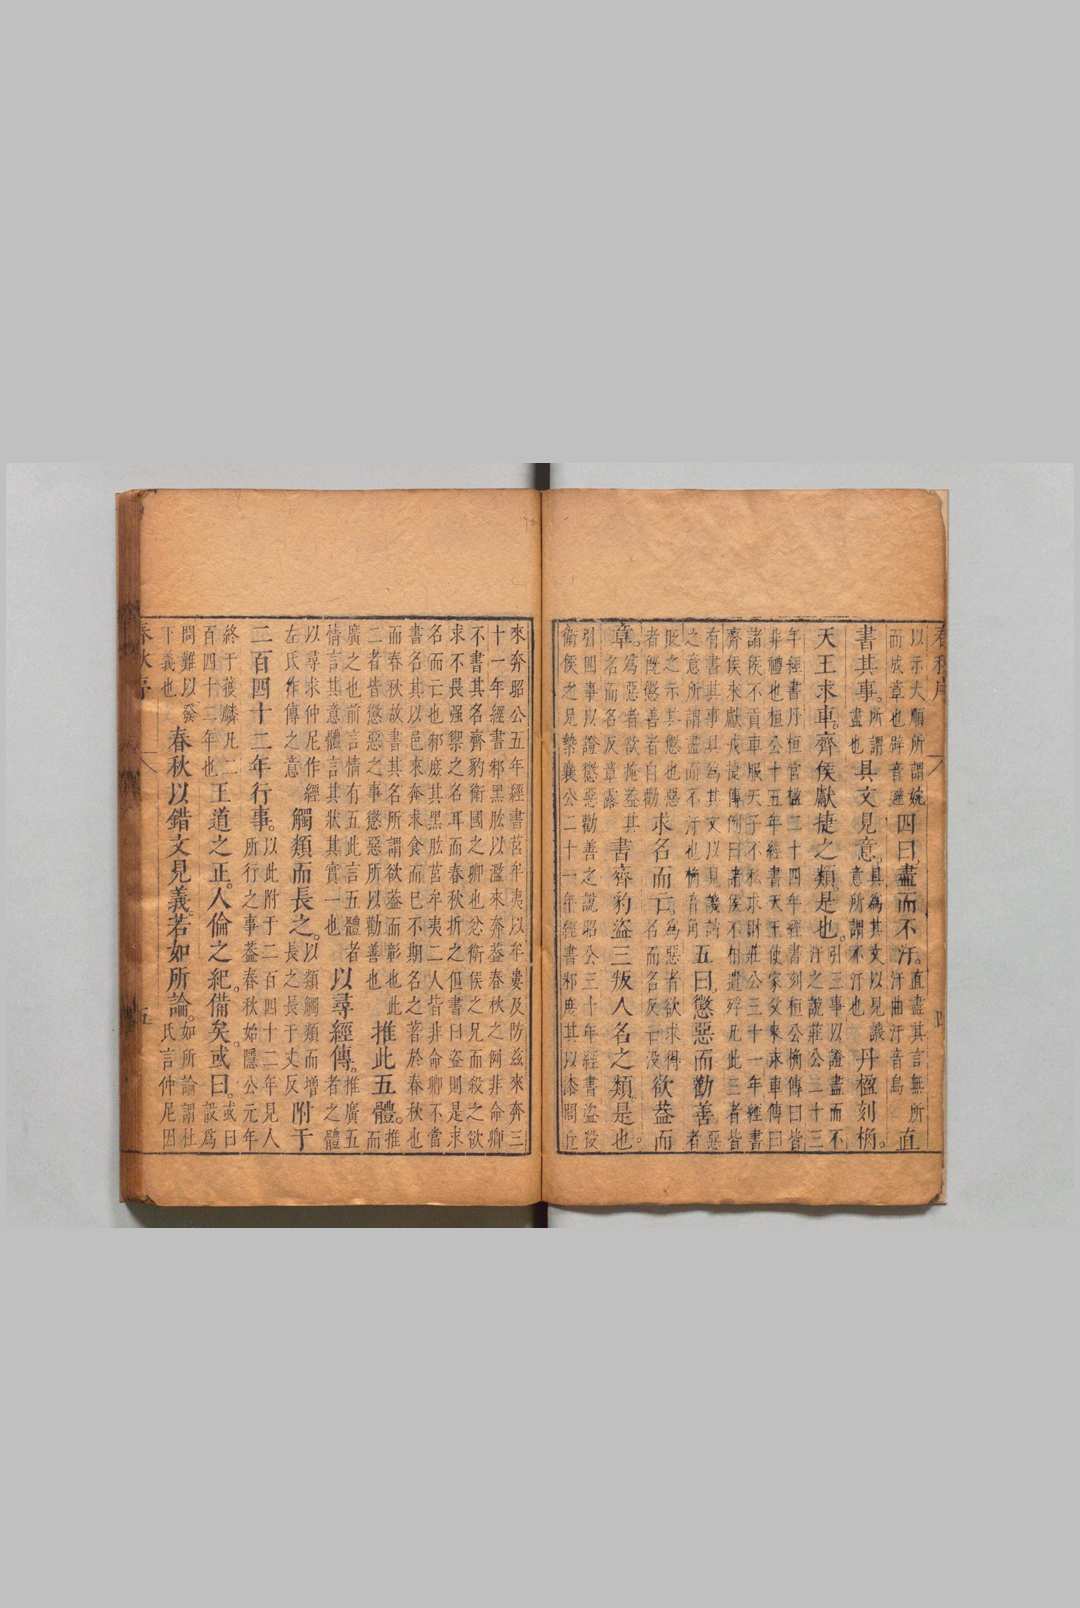 春秋序
四
以示大順所謂婉
而成章也辟音避
四曰盡而不汙。
直盡其言無所
汙曲汙音烏
直
書其事。
所謂
盡也
具文見意。
具為其文以見譏
意所謂不汙也
丹楹刻桷。
天王求車。齊侯獻捷之類是也。
引三事以證盡而不
汙之說莊公二十三
年經書丹桓宮楹二十四年經書刻桓公桷傳曰皆
非禮也桓公十五年經書天王使家父來求車傳曰
諸侯不貢車服天子不私求財莊公三十一年經書
齊侯來獻戎捷傳例曰諸侯不相遺俘凡此三者皆
有書其事具為其文以見譏諷
之意所謂盡而不汙也桷音角
五曰懲惡而勸善
惡
者
貶之示其懲也惡
者旣懲善者自勸
求名而亡
為惡者欲求得
名而名反亡没
欲葢而
章。
為惡者欲掩葢其
名而名反章露
書齊豹盜三叛人名之類是也。
引四事以證懲惡勸善之說昭公二十年經書盜殺
衛侯之兄縶襄公二十一年經書邾庶其以漆閭丘
來奔昭公五年經書莒牟夷以牟婁及防兹來奔三
十一年經書邾黑肱以濫來奔葢春秋之例非命卿
不書其名齊豹衛國之卿也忿衛侯之兄而殺之欲
求不畏强禦之名耳而春秋折之但書曰盜則是求
名而亡也邾庶其黑肱莒牟夷二人皆非命卿不當
書名其以邑來奔求食而巳不期名之著於春秋也
而春秋故書其名所謂欲葢而彰也此
二者皆懲惡之事懲惡所以勸善也
推此五體。
推
而
廣之也前言情有五此言五體者
情言其意體言其狀其實一也
以尋經傳。
推廣五
者之體
以尋求仲尼作經
左氏作傳之意
觸類而長之。
以類觸類而增
長之長于丈反
附于
二百四十二年行事。
以此附于二百四十二年見人
所行之事葢春秋始隱公元年
終于獲麟凡二
百四十二年也
王道之正。人倫之紀。備矣。或曰。
或曰
設為
問難以發
下義也
春秋以錯文見義若如所論。
如所論謂杜
氏言仲尼因
春秋序
五